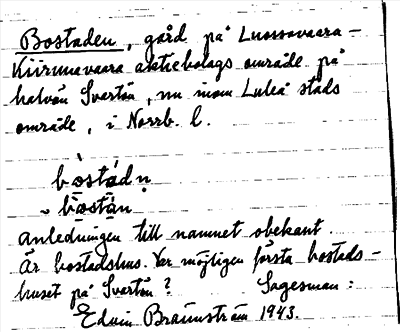 Bostaden, gård på Luossavaara-
Kiirunavaara aktiebolags område på
halvön Svartön, nu inom Luleå stads
område, i Norrb. l.
bòstádṇ
bostan
anledningen till namnet obekant.
Är bostadshus. Var möjligen första bostads-
huset på Svartön? Sagesman:
Edvin Brännström 1943.